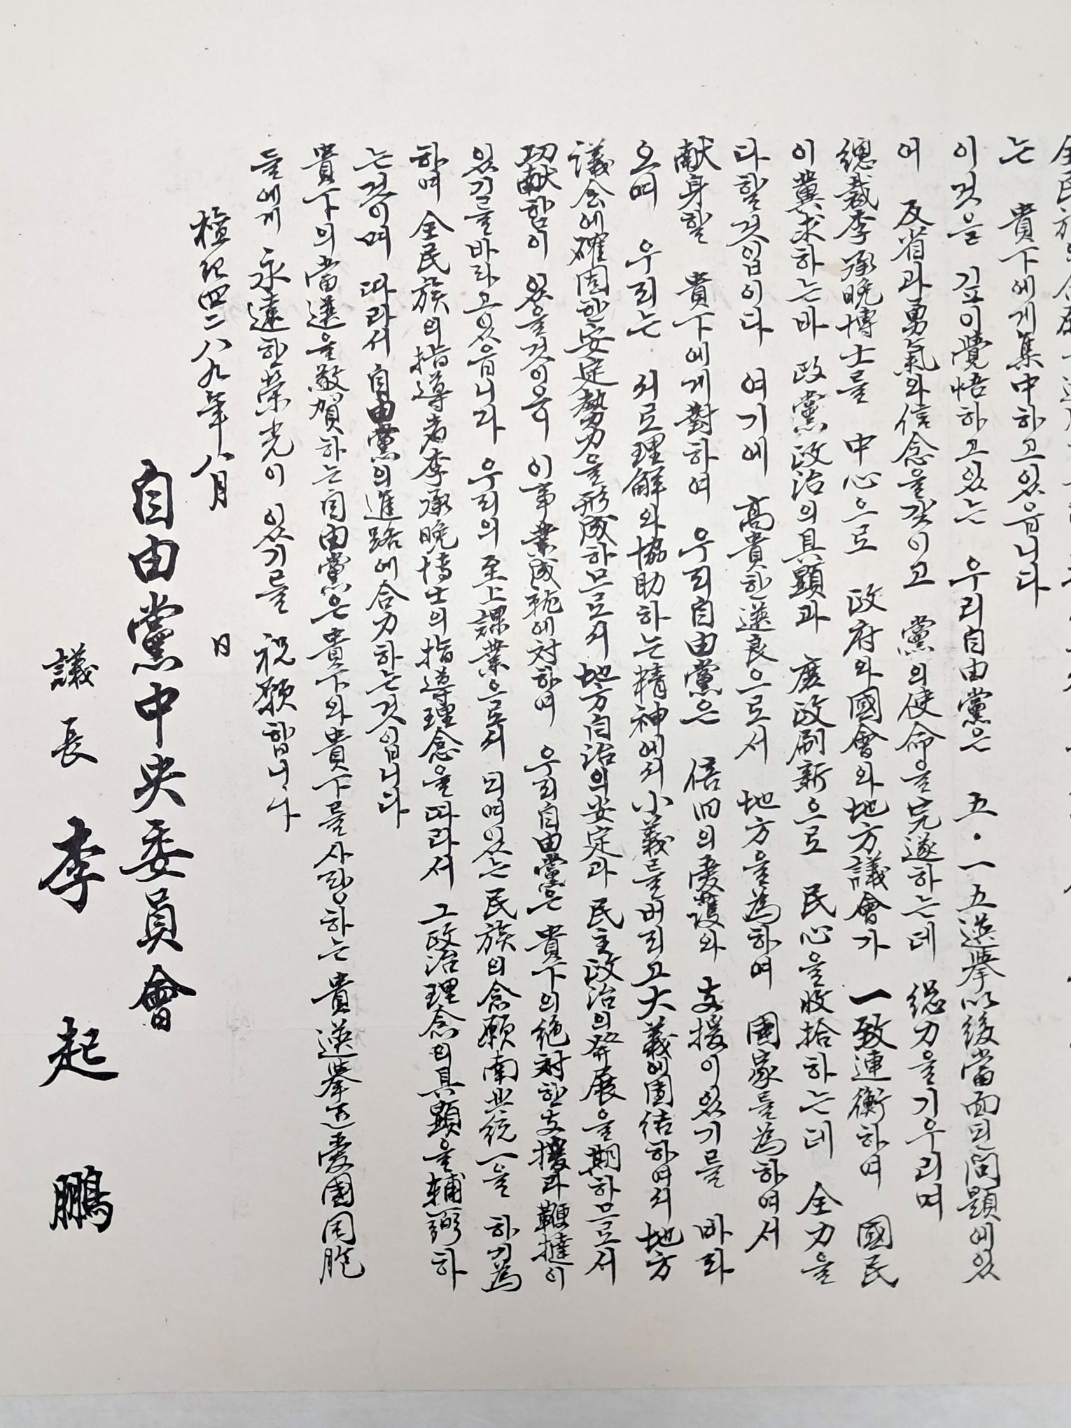 는 貴下에게 集中하고있읍니다
이것을 깊이 覺悟하고있는 우리自由黨은 五·一五選擧以後當面된問題에있
어 反省과勇氣와信念을갖이고 黨의使命을完遂하는데 總力을기우리며
總裁李承晩博士를 中心으로 政府와國會와地方議會가 一致連衡하여 國民
이冀求하는바 政黨政治의具顯과 庶政刷新으로 民心을收拾하는데 全力을
다할것입이다 여기에 高貴한選良으로서 地方을為하여 國家를為하여서
献身할 貴下에게對하여 우리自由黨은 倍旧의愛護와 支援이있기를 바라
오며 우리는 서로理解와協助하는精神에서小義를버리고大義에團結하여서地方
議会에確固한安定勢力을形成하므로서 地方自治의安定과 民主政治의発展을期하므로서
功献함이 있을것이옵 이事業成就에対하여 우리自由黨은 貴下의絶対한支援과鞭撻이
있기를바라고있읍니다 우리의至上課業으로서 되여있는民族의念願南北統一을 하기為
하여 全民族의指導者李承晩博士의指導理念을따라서 그政治理念의具顯을輔弼하
는것이며 따라서 自由黨의進路에合力하는것입니다
貴下의當選을敬賀하는自由黨은貴下와貴下를사랑하는 貴選擧区愛國同胞
들에게 永遠한榮光이 있기를 祝願합니다
檀紀四二八九年八月 日
自由黨中央委員會
議長 李起鵬